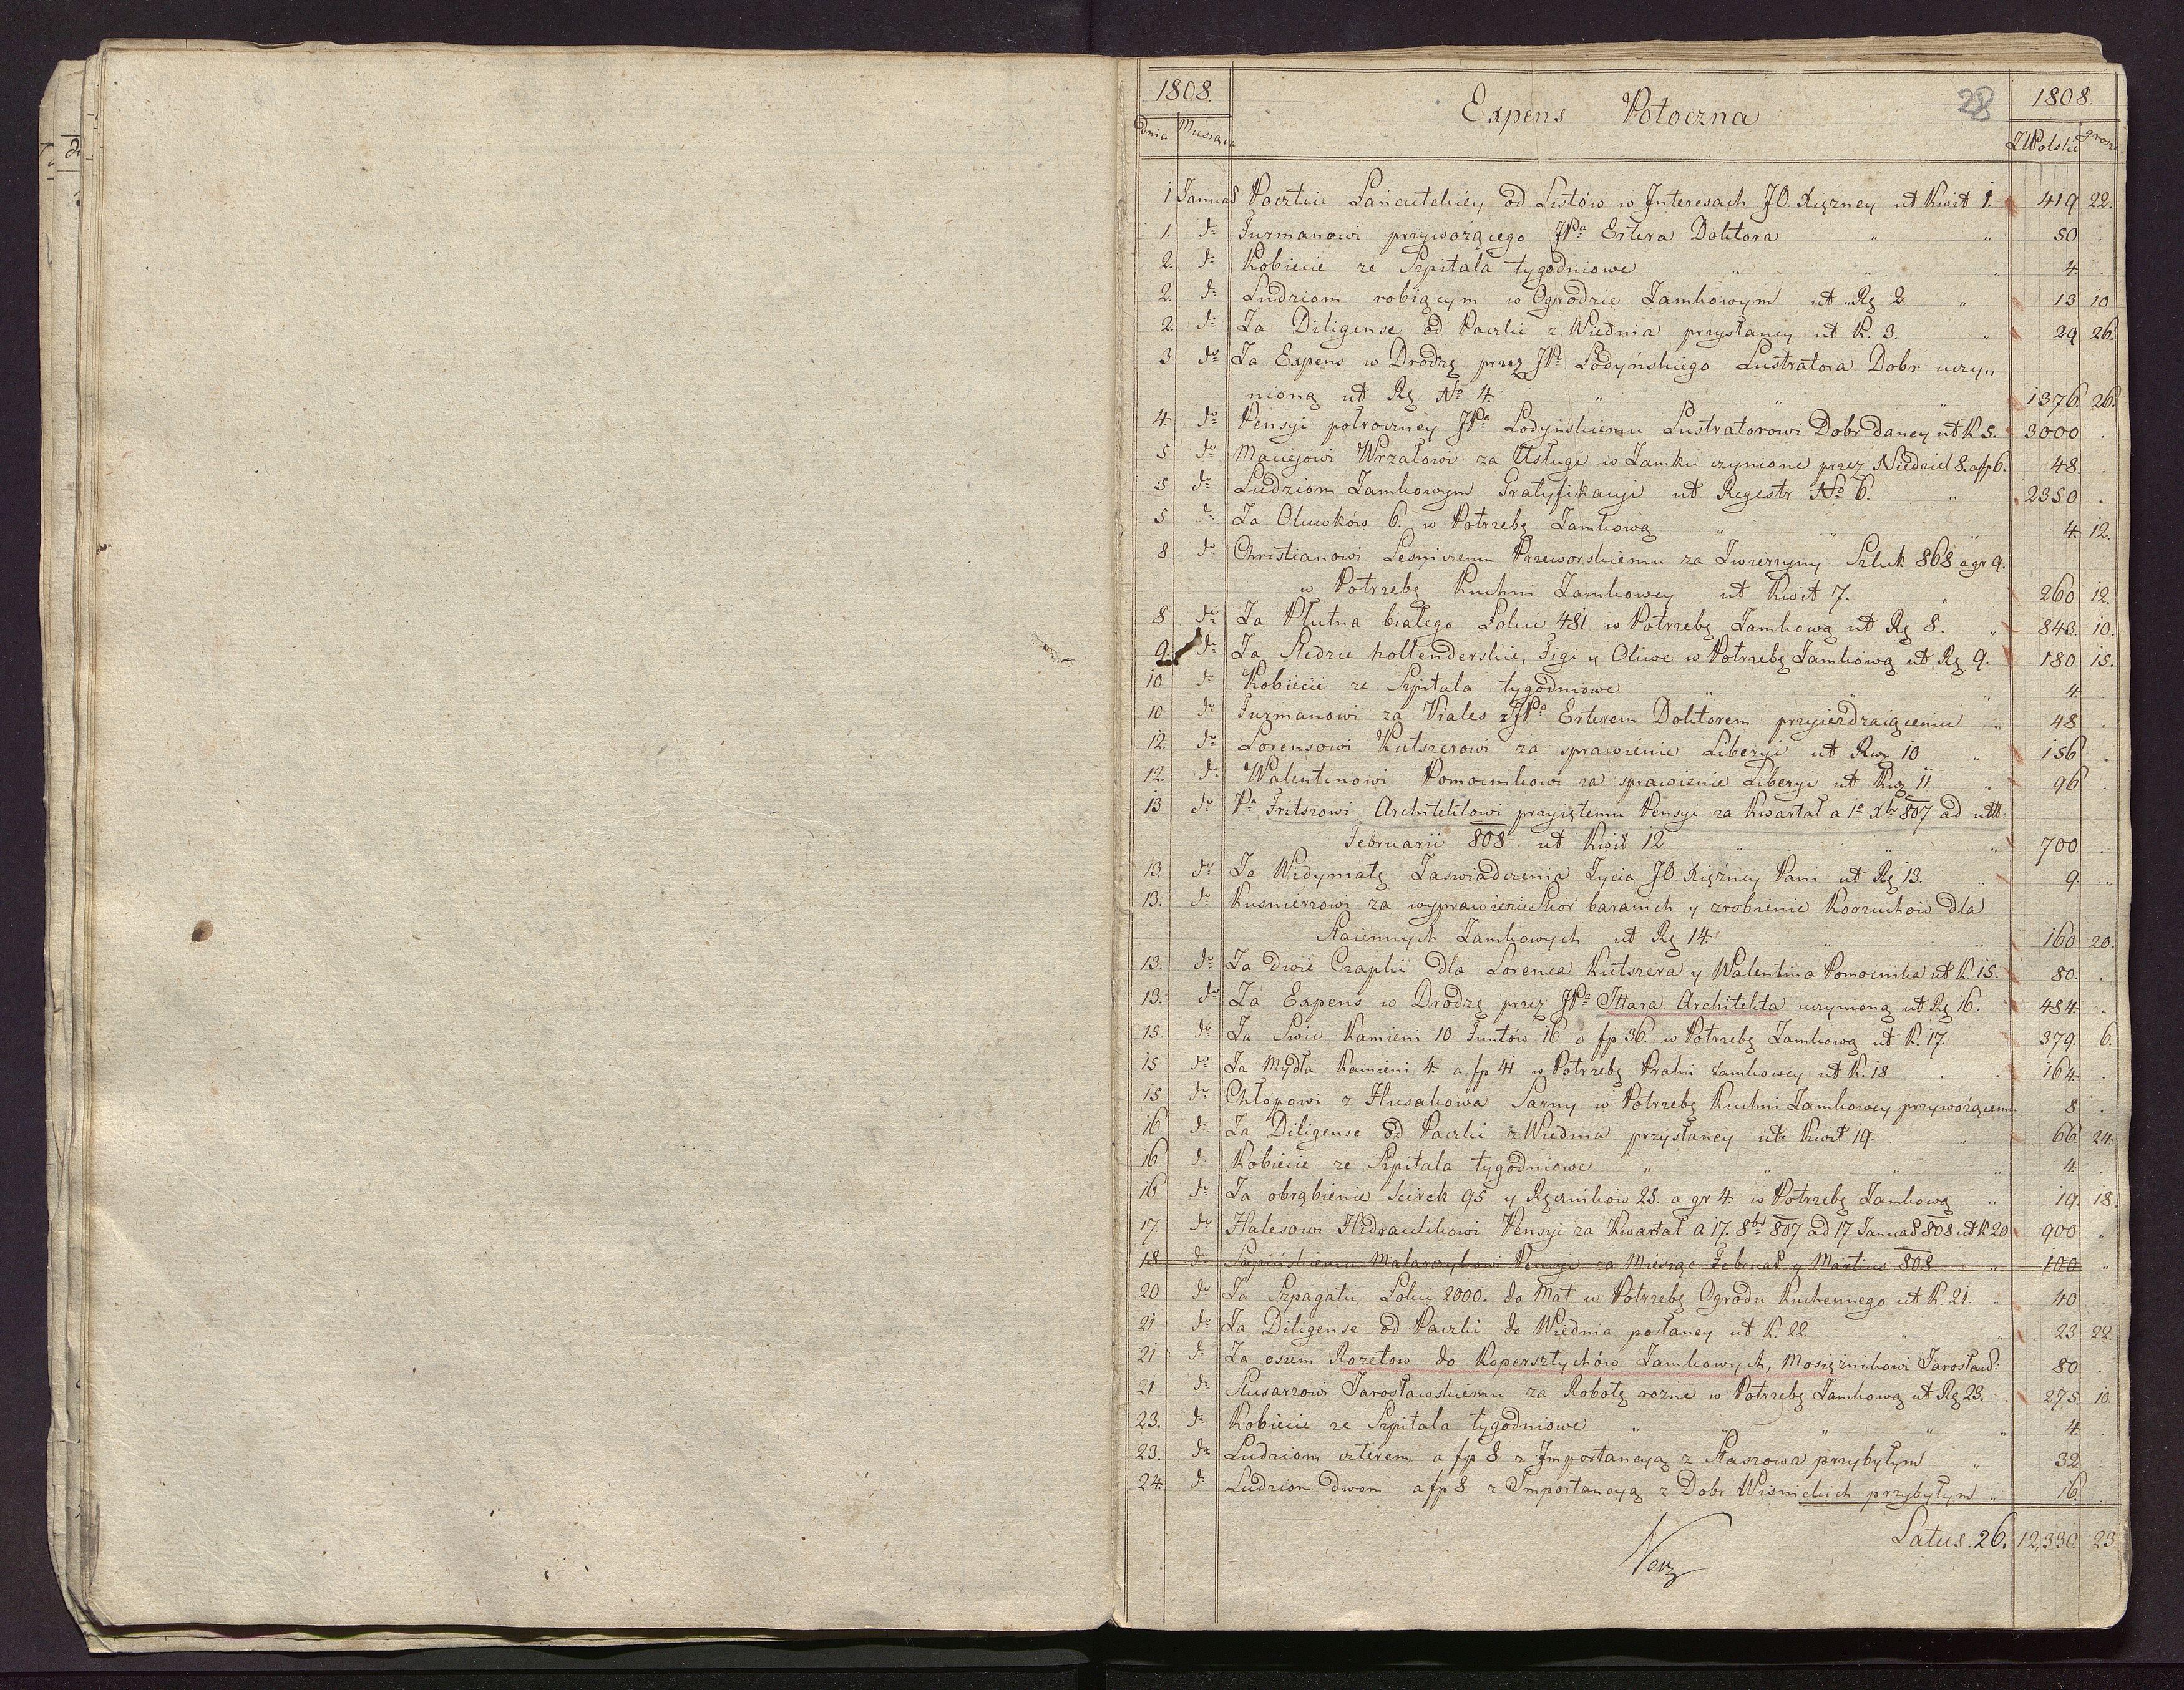 1808. Expens Potoczna 28 1808.
Dnia Miesiąca ZłPolskie grosze.
1 Januar Poczcie Łańcutckiey od Listów w Interesach JO. Xiężney ut Kwit 1. 419 22.
1. do Furmanowi przywozącego JPa Ertera Doktora " " 50 .
2. do Kobiecie ze Szpitala tygodniowe " " " 4. .
2. do Ludziom robiącym w Ogrodzie Zamkowym ut Rg 2. " 13 10
2. do Za Diligense od Paczki z Wiednia przysłaney ut K. 3. " 29 26.
3 do Za Expens w Drodzę przez JPa Łodyńskiego Lustratora Dobr uczy"
nioną ut Rg No 4. " " " 1376. 26.
4. do Pensyi połroczney JPa Łodyńskiemu Lustratorowi Dobr daney ut K 5. 3000 .
5 do Maciejowi Wrzałowi za Usługi w Zamku czynione przez Niedziel 8. a fp 6. 48. .
5 do Ludziom Zamkowym Gratyfikacyi ut Regestr No 6. " 2350 .
5 do Za Oluwków 6. w Potrzebę Zamkową " " " 4. 12.
8 do Christianowi Lesniczemu Przeworskiemu za Zwierzyny Sztuk 868 a gr 9.
w Potrzebę Kuchni Zamkowey ut Kwit 7. " 260 12.
8 do Za Płutna białego Łokci 481 w Potrzebę Zamkową ut Rg 8. " 843. 10.
9. do Za Sledzie hollenderskie, Figi y Oliwe w Potrzebę Zamkową ut Rg 9. 180 15.
10 do Kobiecie ze Szpitala tygodniowe " " " 4. .
10 do Furmanowi za Viales z JPa Erterem Doktorem przyiezdzaiącemu " 48 .
12 do Lorensowi Kutszerowi za sprawienie Liberyi ut Kwg 10 " 156 .
12. do Walentinowi Pomocnikowi za sprawienie Liberyi ut Kwg 11 " 96 .
13 do Pa Fritszowi Architektowi przyiętemu Pensyi za Kwartał a 1a Xbr 807 ad ult
Februarii 808 ut Kwit 12 " " " 700. .
13. do Za Widymatę Zaswiadczenia Zycia JO Xiężney Pani ut Rg 13. " 9. "
13. do Kusnierzowi za wyprawienie Skor baranich y zrobienie Korzuchow dla
Staiennych Zamkowych ut Rg 14. " " 160 20.
13. do Za dwie Czapki dla Lorenca Kutszera y Walentina Pomocnika ut K. 15. 80. .
13. do Za Expens w Drodzę przez JPa Ittara Architekta uczynioną ut Rg 16. 484. .
15. do Za Swic Kamieni 10 Funtów 16 a fp 36. w Potrzebę Zamkową ut K. 17. 379. 6.
15 do Za Mydła Kamieni 4. a fp 41 w Potrzebę Pralni Zamkowey ut K. 18 . . 164. .
15 do Chłopowi z Husakowa Sarny w Potrzebę Kuchni Zamkowey przywożącemu 8 .
16 do Za Diligense od Paczki z Wiednia przysłaney ut Kwit 19. " 66 24.
16. do Kobiecie ze Szpitala tygodniowe " " " " 4. .
16 do Za obrąbienie Scirek 95 y Ręcznikow 25. a gr 4. w Potrzebę Zamkową " 19. 18.
17. do Halesowi Hidraulikowi Pensyi za Kwartał a 17. 8br 807 ad 17. Januar 808 ut K 20 900 "
18 do Malarczykowi Pensyi za Miesiąc Februar y Martius 808. " 100 "
20 do Za Szpagatu Łokci 2000. do Mat w Potrzebę Ogrodu Kuchennego ut K. 21. " 40 .
21 do Za Diligense od Paczki do Wiednia posłaney ut K. 22. " " 23 22.
21 do Za osiem Rozetow do Kopersztychów Zamkowych, Mosiężnikowi Jarosław: 80 .
21 do Slusarzowi Jarosławskiemu za Robotę rozne w Potrzebę Zamkową ut Rg 23. . 275. 10.
23. do Kobiecie ze Szpitala tygodniowe " " " " " 4. .
23. do Ludziom czterem a fp 8 z Importancyą z Staszowa przybyłym " 32 .
24. do Ludziom dwom a fp 8 z Importancyą z Dobr Wisnickich przybyłym " 16. .
Latus. 26. 12,330. 23.